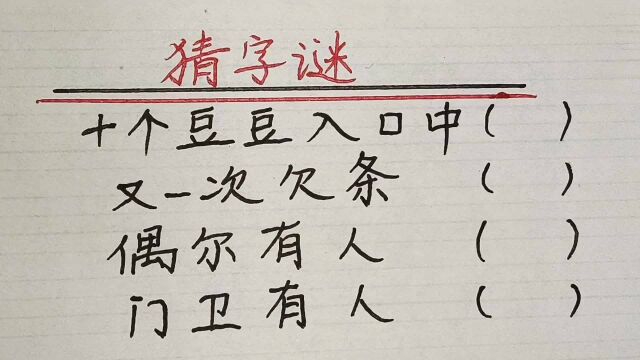 猜字谜
十个豆豆入口中( )
又一次欠条 ( )
偶尔有人 ( )
门卫有人 ( )